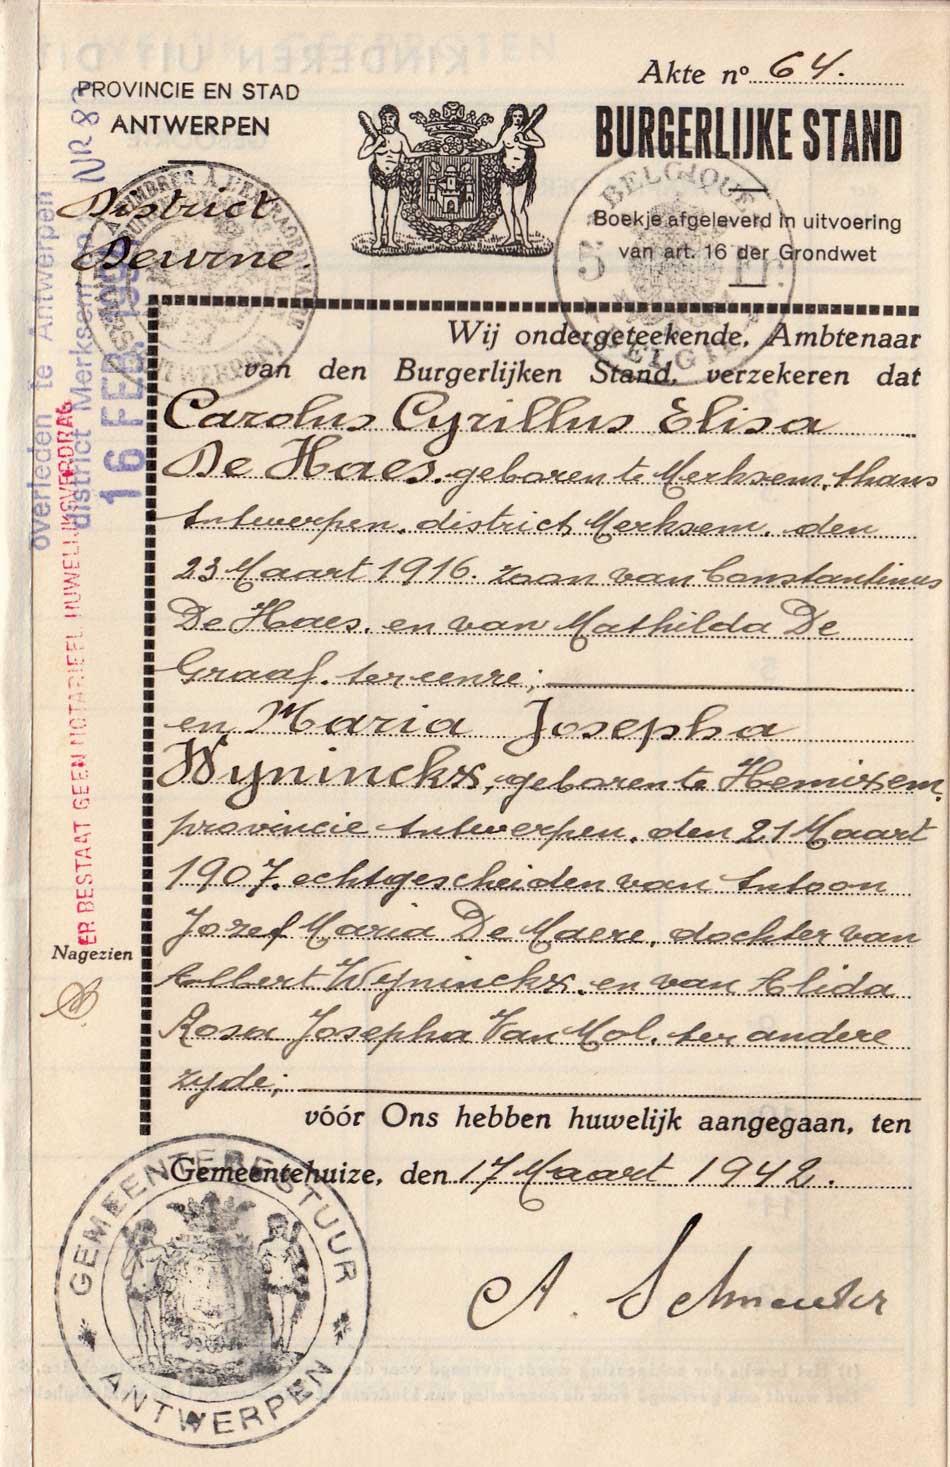 Akte nº 64.
PROVINCIE EN STAD
ANTWERPEN
BURGERLIJKE STAND
District
Deurne
Boekje afgeleverd in uitvoering
van art. 16 der Grondwet
BELGIQUE
5 Fr.
BELGIE
Wij ondergeteekende, Ambtenaar
van den Burgerlijken Stand, verzekeren dat
Carolus Cyrillus Elisa
De Haes, geboren te Merksem, thans
Antwerpen, district Merksem, den
23 Maart 1916, zoon van Constantinus
De Haes, en van Mathilda De
Graaf, ter eenre;
en Maria Josepha
Wyninckx, geboren te Hemixem,
provincie Antwerpen, den 21 Maart
1907, echtgescheiden van Antoon
Jozef Maria De Maere, dochter van
Albert Wyninckx, en van Elida
Rosa Josepha Van Mol, ter andere
zyde;
vóór Ons hebben huwelijk aangegaan, ten
Gemeentehuize, den 17 Maart 1942.
overleden te Antwerpen
district Merksem NR 8
16 FEB. 19
ER BESTAAT GEEN NOTARIEEL HUWELIJKSVERDRAG
Nagezien
GEMEENTEBESTUUR
ANTWERPEN